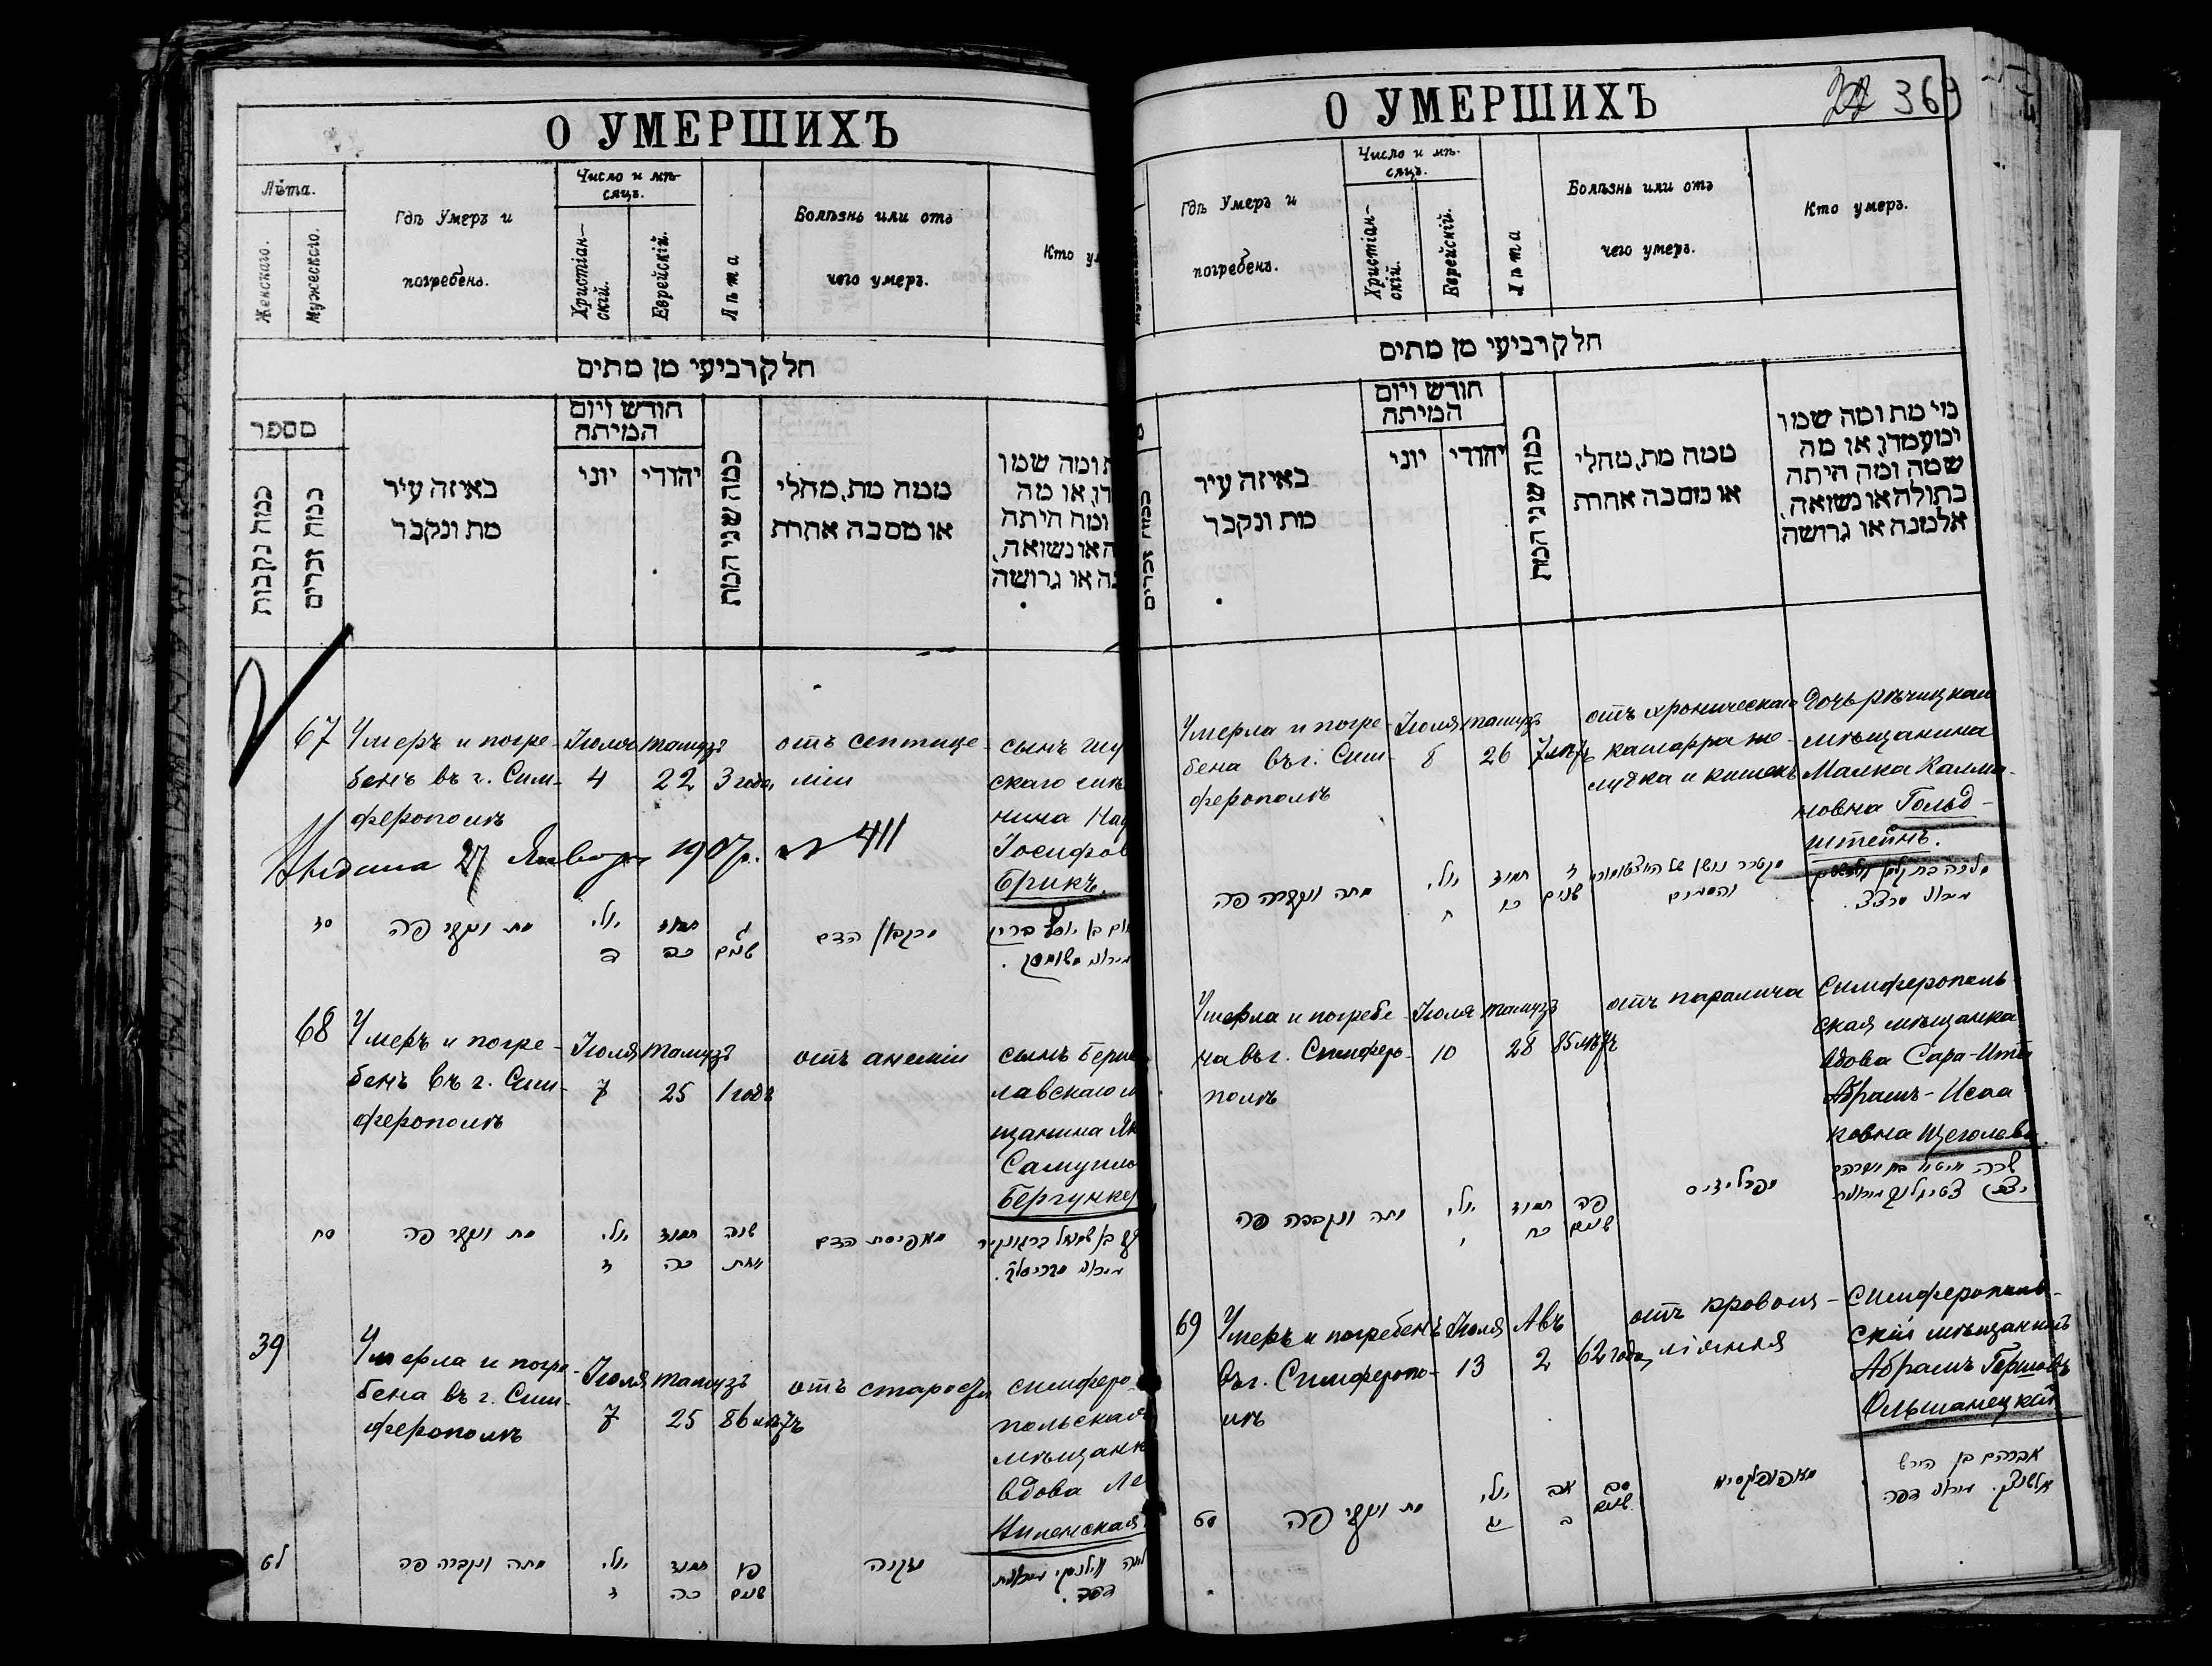 О УМЕРШИХЪ
Лѣта.
Женскаго.
Мужескаго.
Гдѣ Умеръ и
погребенъ.
Число и мѣ-
сяцъ.
Христіан-
скій.
Еврейскій.
Лѣта
Болѣзнь или отъ
чего умеръ.
Кто у
חלק רביעי מן מתים
מספר
כמה נקבות
כמה זכרים
באיזה עיר
מת ונקבר
חודש ויום
המיתה
יוני
יהודי
כמה שני המת
ממה מת, מחלי
או מסבה אחרת
ומה שמו
או מה
ומה היתה
או נשואה,
או גרושה
67
Умеръ и погре-
бенъ въ г. Сим-
ферополѣ
Іюля
4
Тамузъ
22
3 года
отъ септице-
міи
сынъ
скаго
нина
Іосифов
Брикъ.
27 Января 1907 г. № 411
מת ונקבר פה
יולי
ד
תמוז
כב
ג
שנים
הדם
68
Умеръ и погре-
бенъ въ г. Сим-
ферополѣ
Іюля
7
Тамузъ
25
1 годъ
отъ анеміи
сынъ
лавскаго
щанина
Самуило
סח
מת ונקבר פה
יולי
ז
תמוז
כה
שנה
אחת
הדם
39
Умерла и погре-
бена въ г. Сим-
ферополѣ
Іюля
7
Тамузъ
25
86 лѣтъ
отъ старости
симферо-
польская
мѣщанк
вдова Ле
לט
מתה ונקברה פה
יולי
ז
תמוז
כה
פו
שנים
זקנה
О УМЕРШИХЪ
369
Гдѣ Умеръ и
погребенъ.
Число и мѣ-
сяцъ.
Христіан-
скій.
Еврейскій.
Лѣта
Болѣзнь или отъ
чего умеръ.
Кто умеръ.
חלק רביעי מן מתים
כמה זכרים
באיזה עיר
מת ונקבר
חודש ויום
המיתה
יוני
יהודי
כמה שני המת
ממה מת, מחלי
או מסבה אחרת
מי מת ומה שמו
ומעמדו, או מה
שמה ומה היתה
בתולה או נשואה,
אלמנה או גרושה
Умерла и погре-
бена въ г. Сим-
ферополѣ
Іюля
8
Тамузъ
26
7 лѣтъ
отъ хроническаго
катарра же-
лудка и кишекъ
Дочь рѣчицкаго
мѣщанина
Малка Калма-
новна Гольд-
штейнъ.
מתה ונקברה פה
יולי
ח
תמוז
כו
ז
שנים
Умерла и погребе-
на въ г. Симферо-
полѣ
Іюля
10
Тамузъ
28
85 лѣтъ
отъ паралича
Симферополь-
ская мѣщанка
вдова Сара-Итта
Абрамъ-Исаа-
ковна Щеголева
מתה ונקברה פה
יולי
י
תמוז
כח
פה
שנים
69
Умеръ и погребенъ
въ г. Симферопо-
лѣ
Іюля
13
Авъ
2
62 года
отъ кровоиз-
ліянія
Симферополь-
скій мѣщанинъ
Абрамъ Гершовъ
Ольшанецкій
סט
מת ונקבר פה
יולי
יג
אב
ב
סב
שנים
אברהם בן הירש